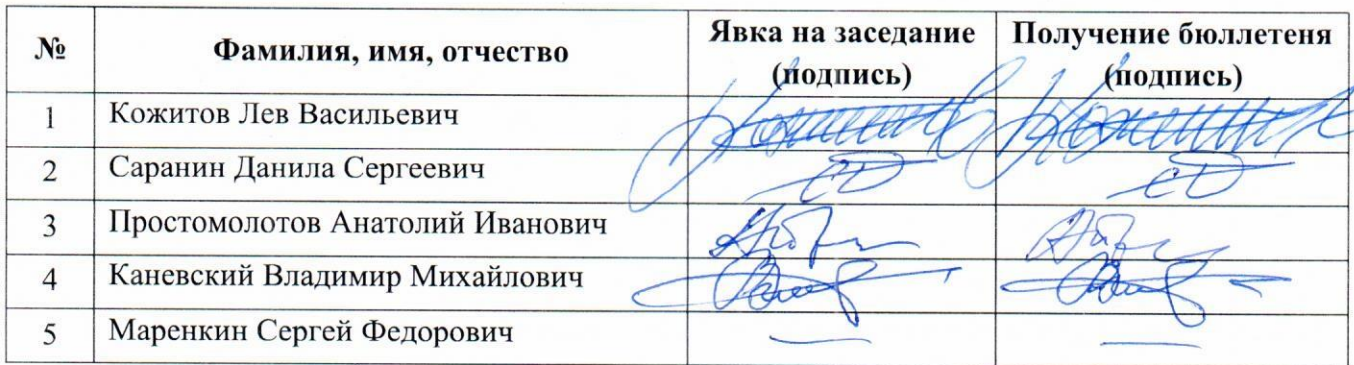 № Фамилия, имя, отчество Явка на заседание (подпись) Получение бюллетеня (подпись)
1 Кожитов Лев Васильевич
2 Саранин Данила Сергеевич
3 Простомолотов Анатолий Иванович
4 Каневский Владимир Михайлович
5 Маренкин Сергей Федорович — —